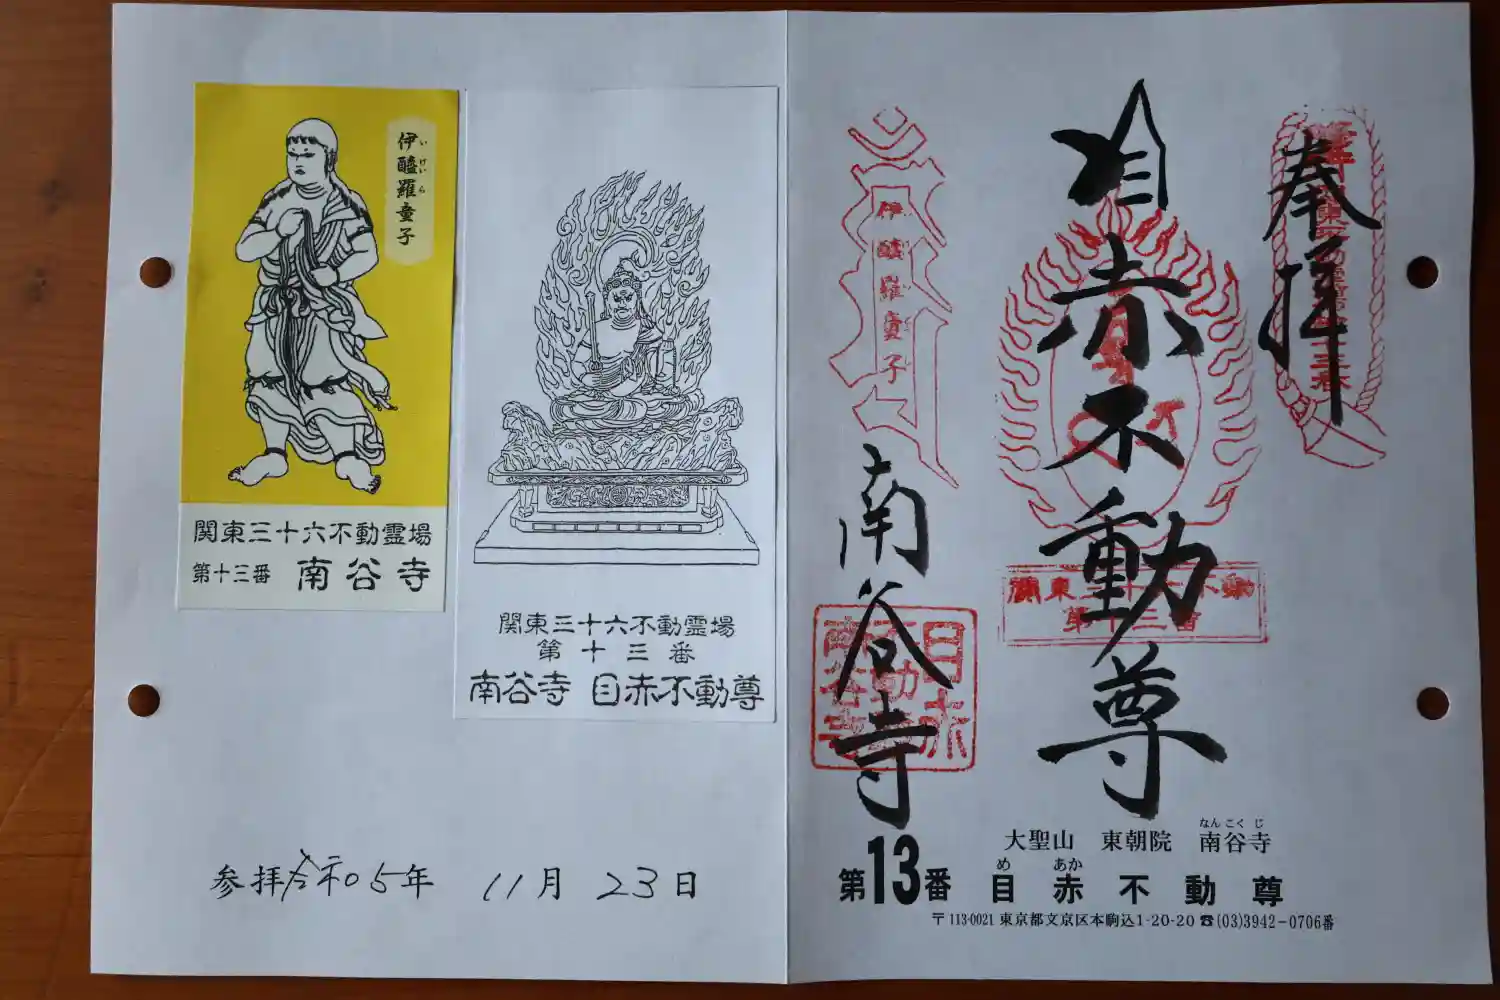 伊醯羅童子
いけいら
関東三十六不動霊場
第十三番 南谷寺
関東三十六不動霊場
第十三番
南谷寺 目赤不動尊
参拝令和05年 11月 23日
奉拝
目赤不動尊
関東三十六不動
第十三番
伊醯羅童子
南谷寺
目赤
不動
南谷寺
なんこくじ
大聖山 東朝院 南谷寺
め あか
第13番 目赤不動尊
〒113-0021 東京都文京区本駒込1-20-20 ☎(03)3942-0706番